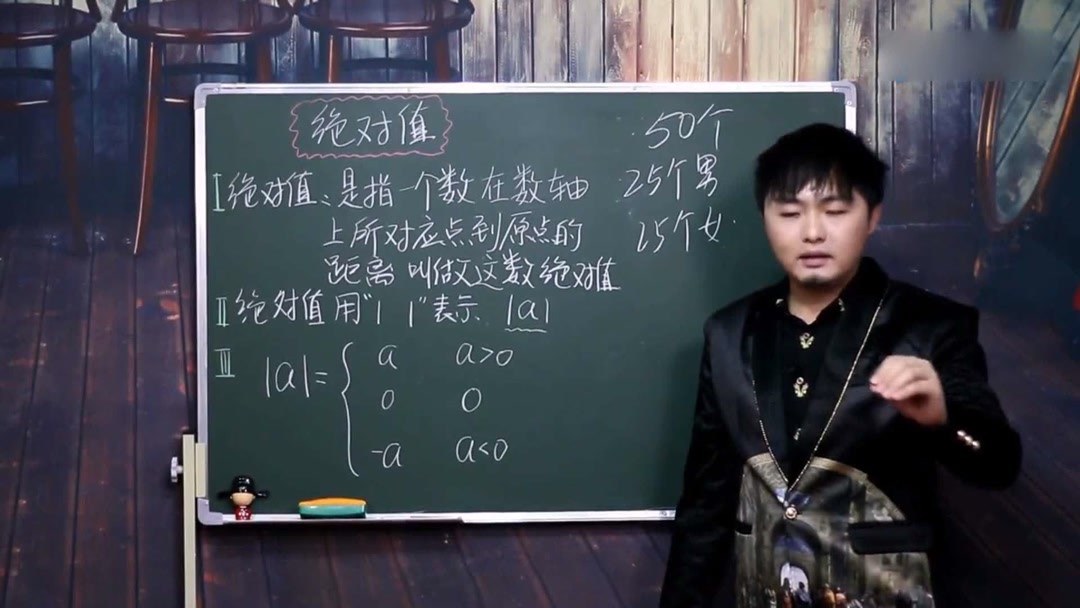 绝对值
Ⅰ 绝对值：是指一个数在数轴
上所对应点到原点的
距离 叫做这数绝对值
Ⅱ 绝对值用"| |"表示 |a|
Ⅲ |a|={
a a>0
0 0
-a a<0
50个
25个男
25个女